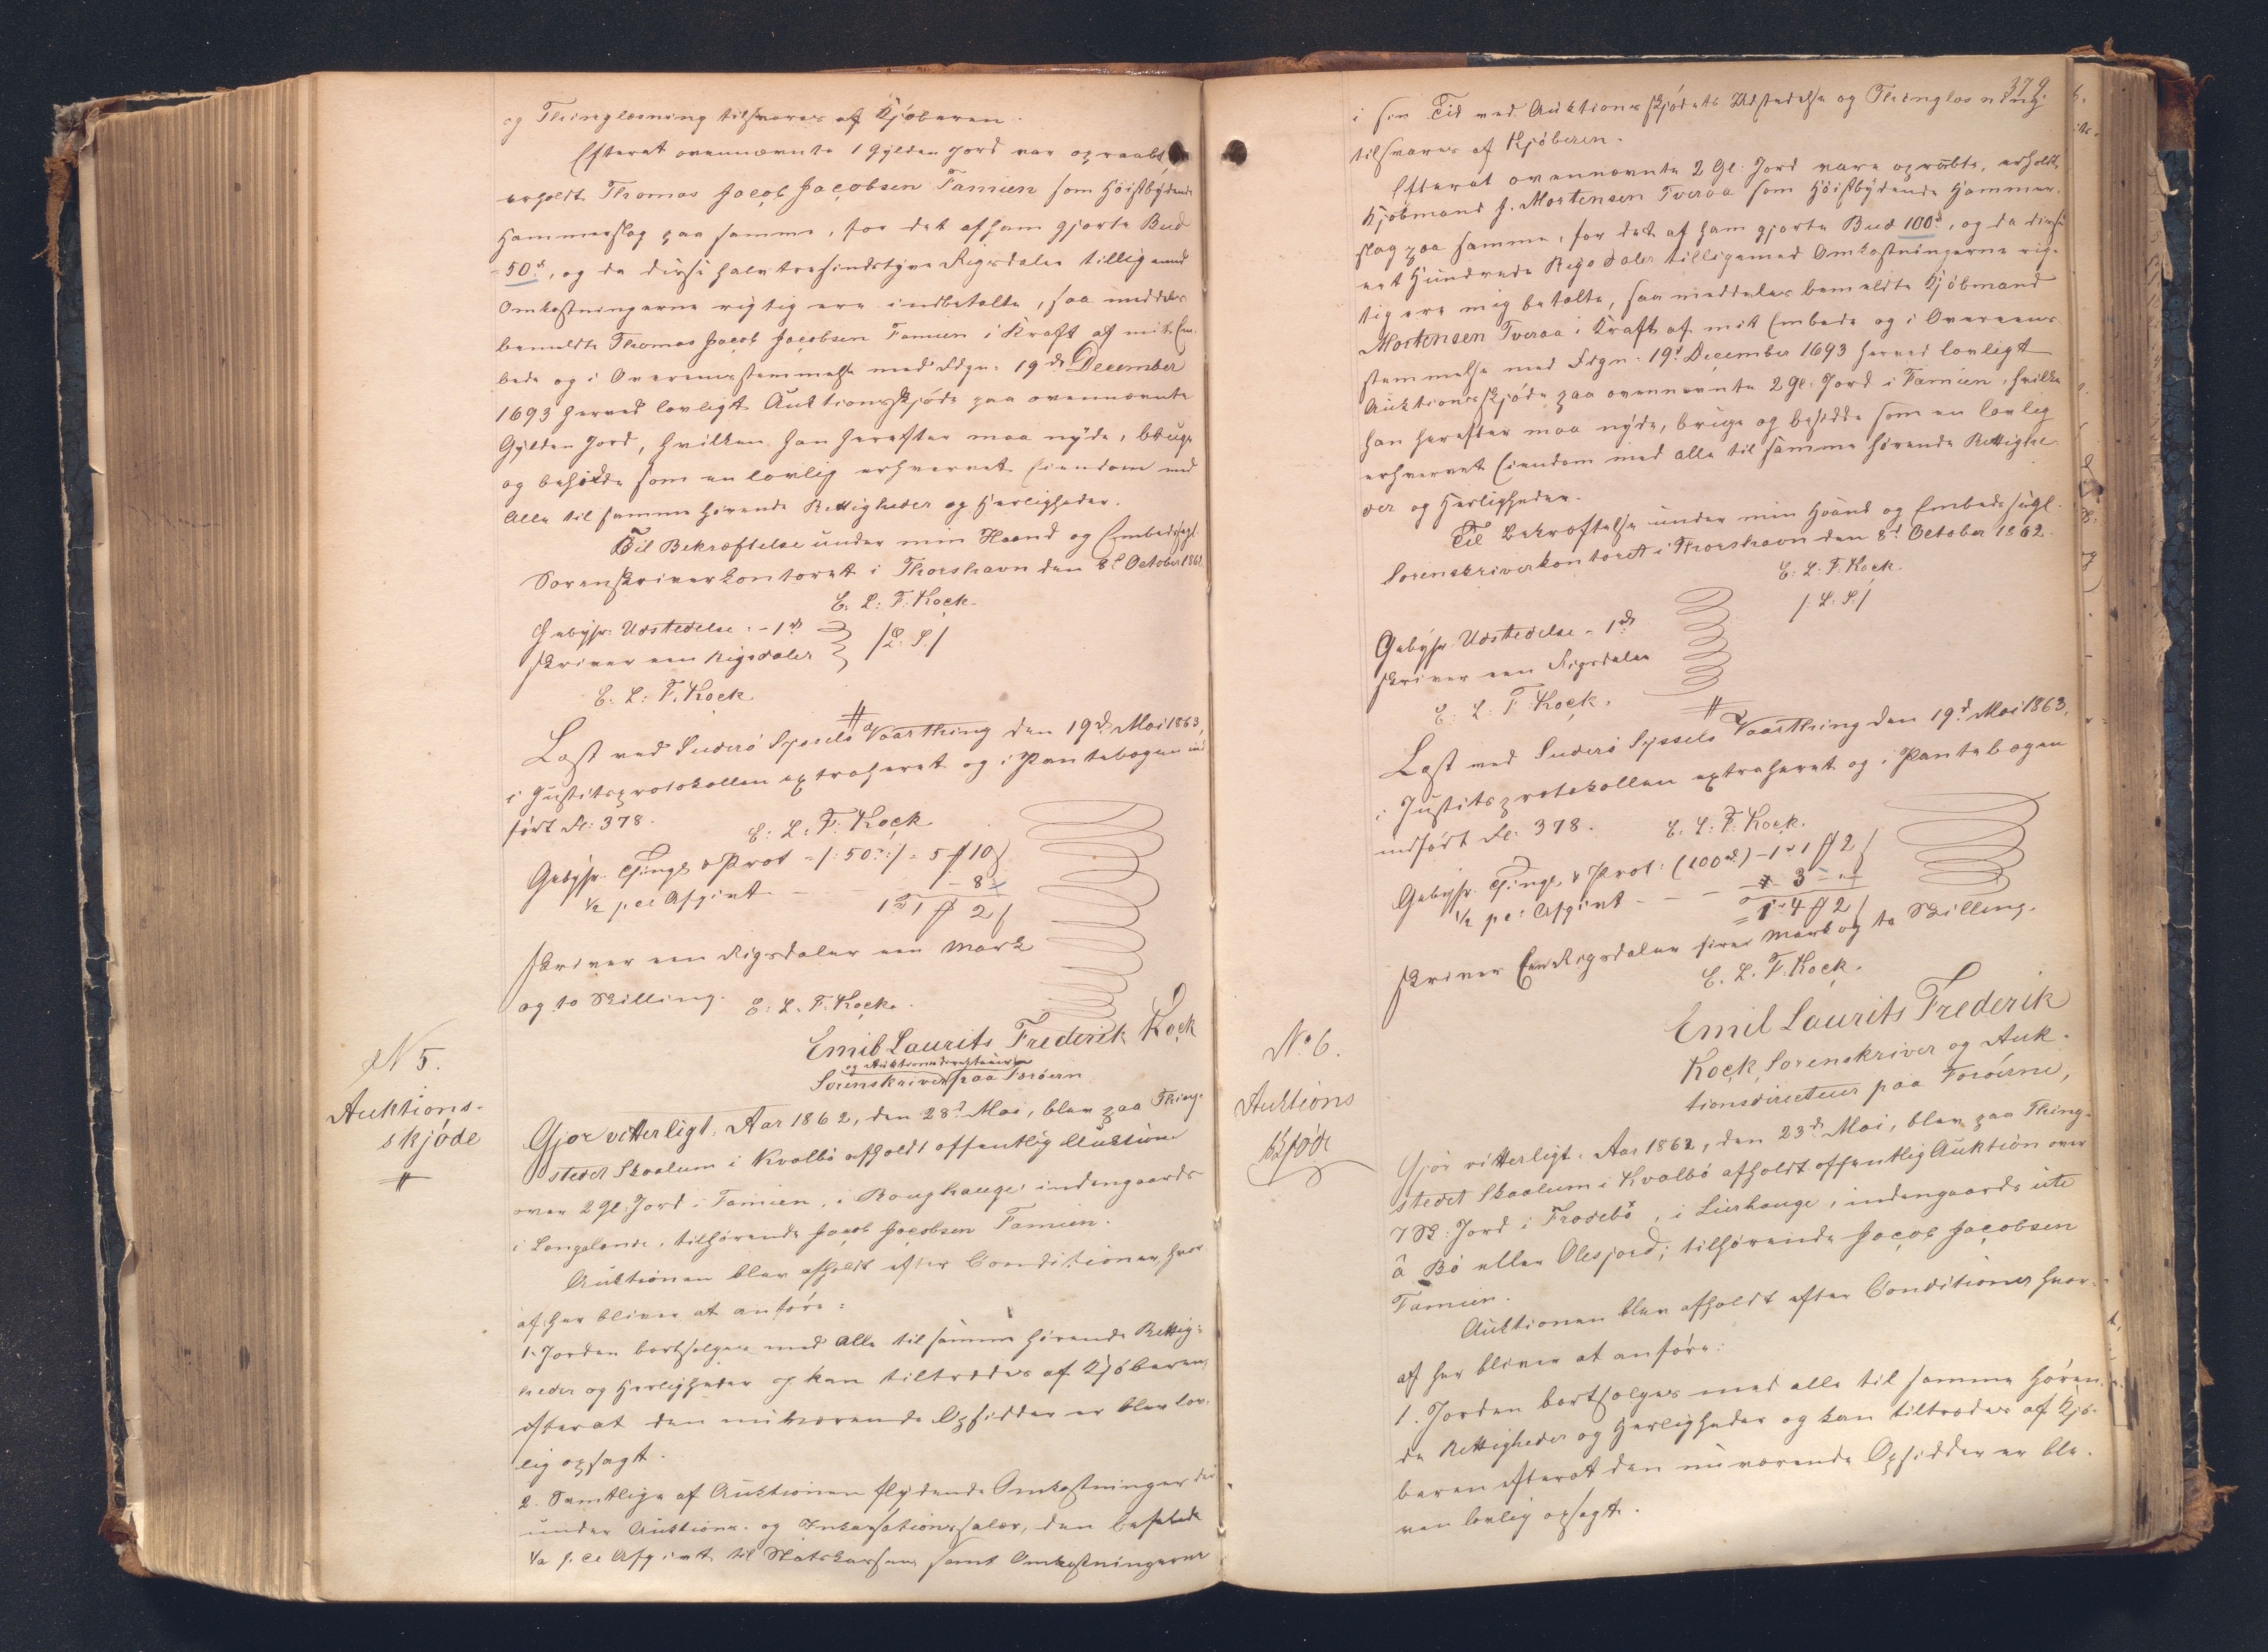 og Thinglæsning tilsvares af Kjöberen.
Efterat ovennævnte 1 Gylden Jord var opraabt,
erholdt Thomas Jacob Jacobsen Famien som Höistbydende
Hammerslag paa samme, for det af ham gjorte Bud
= 50 rd, og da disse halvtresindstyve Rigsdaler tilligemed
Omkostningerne rigtig ere indbetalte, saa meddeles
bemeldte Thomas Jacob Jacobsen Famien i Kraft af mit Em-
bede og i Overensstemmelse med Frdgn. 19d December
1693 herved lovligt Auktionsskjöde paa ovennævnte
Gylden Jord, hvilken han herefter maa nyde, bruge
og besidde som en lovlig erhvervet Eiendom med
alle til samme hörende Rettigheder og Herligheder.
Til Bekræftelse under min Haand og Embedssegl.
Sorenskriverkontoret i Thorshavn den 8d October 1862.
E. L. F. Kock.
Gebyhr. Udstedelse. - 1 rd
skriver een Rigsdaler /L. S./
E. L. F. Kock
Læst ved Suderö Syssels Vaarthing den 19d Mai 1863,
i Justitsprotokollen extraheret og i Pantebogen ind-
fört Fl. 378.
E. L. F. Kock
Gebyhr. Thingl. & Prot = /: 50 rd :/ = 5 # 10 /
½ pct Afgivt - - 1 - 8 -
1 rd 1 # 2 /
skriver een Rigsdaler een Mark
og to Skilling. E. L. F. Kock.
N 5.
Auktions-
skjöde
Emil Laurits Frederik Kock
og Auktionsdirecteur
Sorenskriver paa Færöerne
Gjör vitterligt: Aar 1862, den 28d Mai, blev paa Thing-
stedet Skaalum i Kvalbö afholdt offentlig Auktion
over 2 Gl. Jord i Famien, i Boughauge indengaards
i Langalande, tilhörende Jacob Jacobsen Famien.
Auktionen blev afholdt efter Conditioner, hvor-
af her bliver at anföre:
1. Jorden bortsælges med alle til samme hörende Rettig-
heder og Herligheder og kan tiltrædes af Kjöberen,
efterat den nuværende Opsidder er bleven lov-
lig opsagt.
2. Samtlige af Auktionen flydende Omkostninger der-
under Auktions- og Inkassationssalær, den befalede
½ p. Ct Afgivt til Statskassen, samt Omkostningerne
379.
i sin Tid ved Auktionsskjödets Udstedelse og Thinglæsning
tilsvares af Kjöberen.
Efterat ovennævnte 2 Gl. Jord vare opraabte, erholdt
Kjöbmand J. Mortensen Tveraa som Höistbydende Hammer-
slag paa samme, for det af ham gjorte Bud 100 rd, og da disse
eet Hundrede Rigsdaler tilligemed Omkostningerne rig-
tig ere mig betalte, saa meddeles bemeldte Kjöbmand
Mortensen Tveraa i Kraft af mit Embede og i Overeens-
stemmelse med Frdgn. 19d December 1693 herved lovligt
Auktionsskjöde paa ovennævnte 2 Gl. Jord i Famien, hvilke
han herefter maa nyde, bruge og besidde som en lovlig
erhvervet Eiendom med alle til samme hörende Rettighe-
der og Herligheder.
Til Bekræftelse under min Haand og Embedssegl.
Sorenskriverkontoret i Thorshavn den 8d October 1862.
E. L. F. Kock.
/: L. S. /
Gebyhr. Udstedelse - 1 rd
skriver een Rigsdaler
E. L. F. Kock.
Læst ved Suderö Syssels Vaarthing den 19d Mai 1863,
i Justitsprotokollen extraheret og i Pantebogen
indfört Fl. 378. E. L. F. Kock.
Gebyhr. Thingl. & Prot. (100 rd) - 1 rd 1 # 2 /
½ pc: Afgivt - - 3 - -
= 1 - 4 # 2 /
skriver Een Rigsdaler fire Mark og to Skilling.
E. L. F. Kock.
No 6.
Auktions
skjöde
Emil Laurits Frederik
Kock, Sorenskriver og Auk-
tionsdirecteur paa Færöerne,
Gjör vitterligt: Aar 1862, den 23d Mai, blev paa Thing-
stedet Skaalum i Kvalbö afholdt offentlig Auktion over
7 Sk. Jord i Frodebö, i Lierhauge, indengaards ute
â Bö eller Olesjord; tilhörende Jacob Jacobsen
Famien.
Auktionen blev afholdt efter Conditioner hvor-
af her bliver at anföre:
1. Jorden bortsælges med alle til samme hören-
de Rettigheder og Herligheder og kan tiltrædes af Kjö-
beren efterat den nuværende Opsidder er ble-
ven lovlig opsagt.